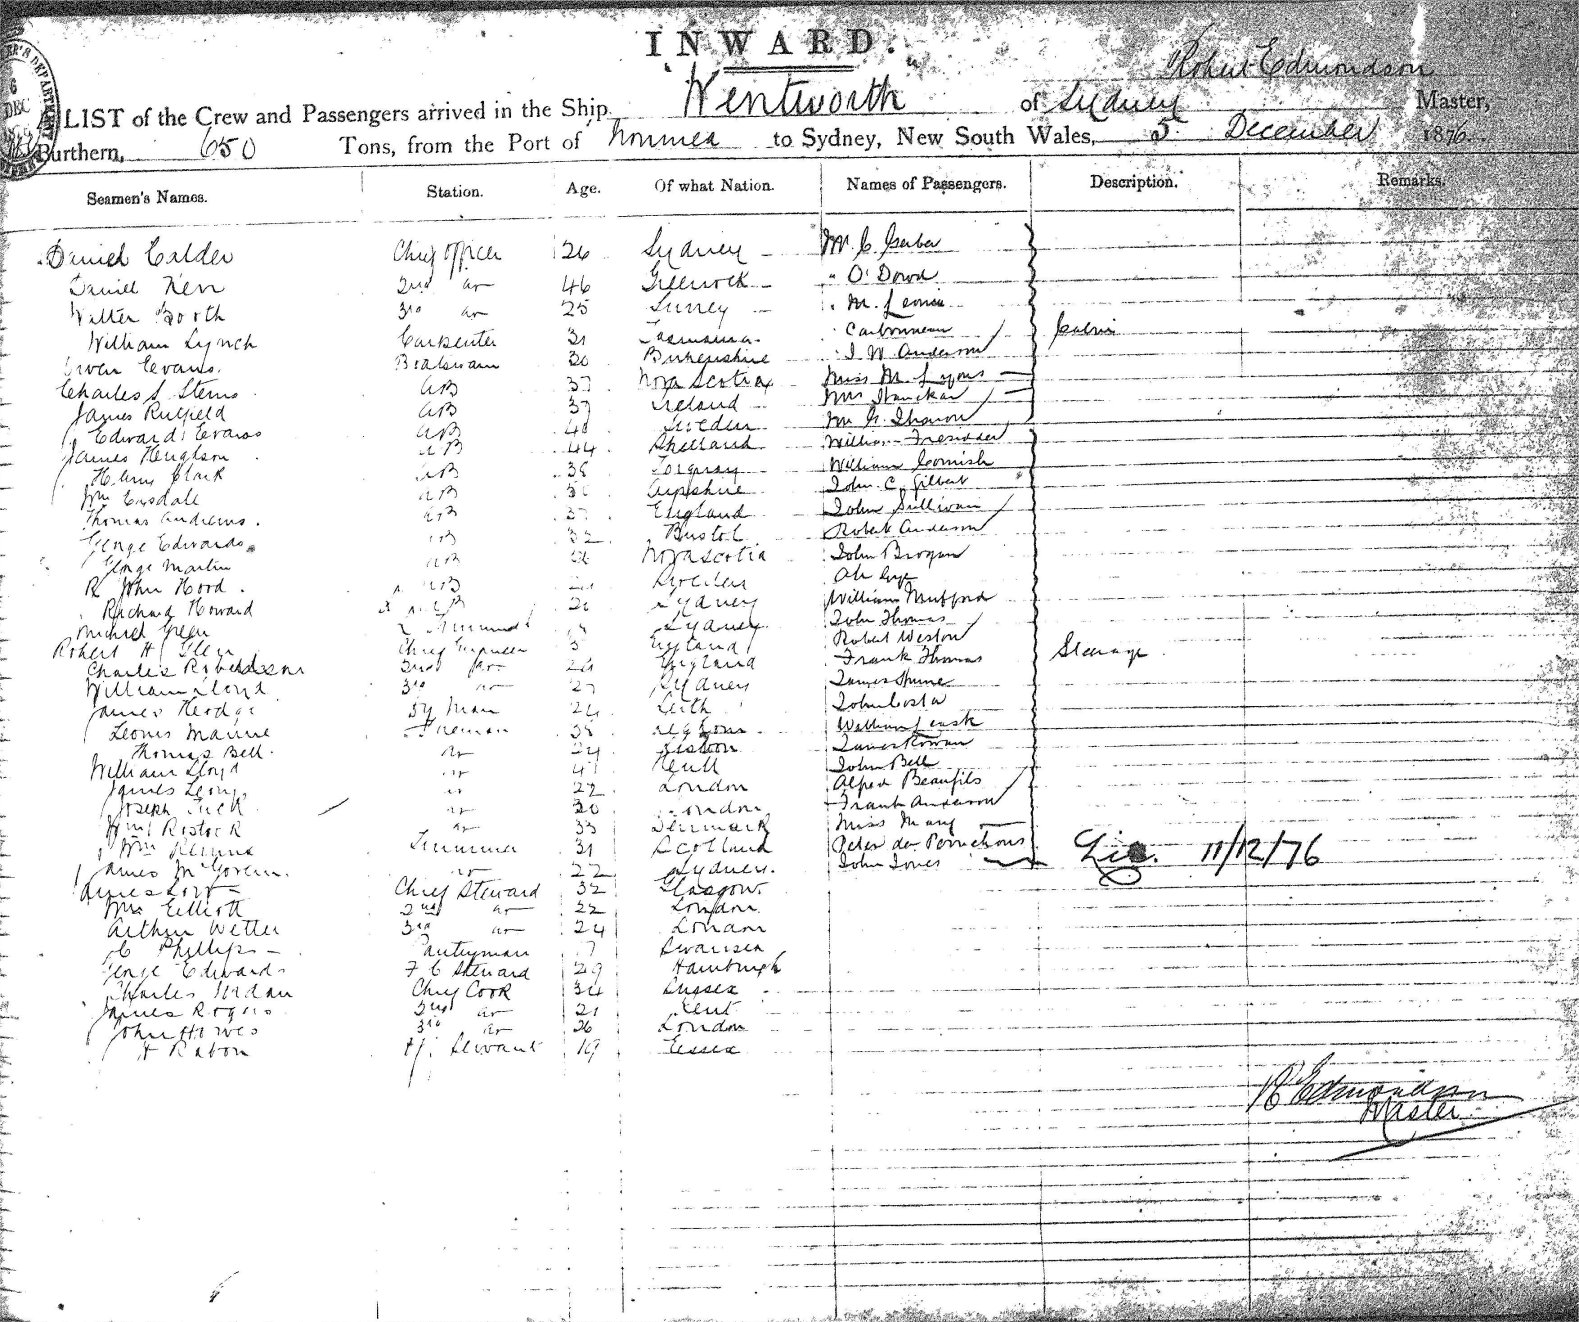 INWARD.
Robert Edmondson
LIST of the Crew and Passengers arrived in the Ship "Wentworth" of Sydney Master,
Burthern, 650 Tons, from the Port of Noumea to Sydney, New South Wales, 5 December 1876
Seamen's Names. Station. Age. Of what Nation. Names of Passengers. Description. Remarks.
Daniel Calder Chief Officer 26 Sydney Mr C. Gerber
Daniel Kerr 2nd do 46 Greenock " O'Dowd
Walter Booth 3rd do 25 Surrey " M.
William Lynch Carpenter 31 Tasmania Carbonneau Cabin
Owen Evans Boatswain 30 J W Anderson
Charles S Sterns AB 37 Nova Scotia Miss M Lyons
James Rutfield AB 37 Ireland Mrs
Edward Evans AB Sweden Mr G.
James Hughson AB 44 Shetland William
Henry Clark AB 38 Torquay William Cornish
Wm AB John C. Gilbert
Thomas Andrews. AB 37 England John Sullivan
George Edwards AB 32 Bristol Robert Anderson
George Martin AB Nova Scotia John Brogan
R John Hood. AB Sweden Ah
Richard Howard AB Sydney William Mufford
Michael Green Sydney John Thomas
Robert H Glen Chief Engineer England Robert Weston
Charles Robertson 2nd do England Frank Thomas Steerage
William Lloyd 3rd do 27 Sydney James
James Dy Man 24 Leith John Costa
Fireman 38 William Leask
Thomas Bell. do Lisbon James Rowan
William Lloyd do 41 Hull John Bell
James do 22 London Alfred Beaufils
Joseph Tuck do 30 London Frank Anderson
Wm Rostock do 33 Denmark Miss Mary
Wm Trimmer 31 Scotland Peter
James McGovern. do 22 Sydney. John Jones 11/12/76
James Chief Steward 32 Glasgow
Mrs Elliott 2nd do 22 London
Arthur Wetter 3rd do 24 London
C Phillips Pantryman Swansea
George Edwards F C Steward 29 Hamburgh
Charles Jordan Chief Cook 34 Sussex
James Rogers 2nd do 21 Kent
John Howes 3rd do 26 London
H Rabon Servant 19 Essex
R Edmondson
Master